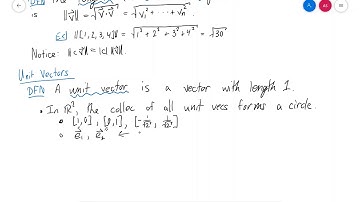 is ‖v⃗‖ = √(v⃗·v⃗) = √(v₁² + ⋯ + vₙ²).
Ex] ‖[1,2,3,4]‖ = √(1² + 2² + 3² + 4²) = √30
Notice: ‖cv⃗‖ = |c| ‖v⃗‖.
Unit Vectors
DFN A unit vector is a vector with length 1.
• In ℝ², the collec of all unit vecs forms a circle.
◦ [1,0], [0,1], [-1/√2, 1/√2]
◦ e⃗₁, e⃗₂ ←